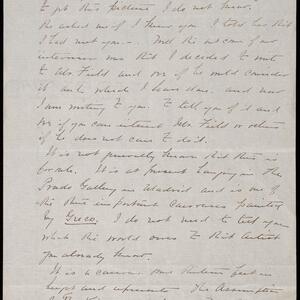 to get this picture I do not know.
She asked me if I knew you I told her that
I had met you. Well the outcome of our
interview was that I decided to write
to Mr Field and see if he would consider
it and which I have done. and now
I am writing to you to tell you of it and
see if you can interest Mr Field or others
if he does not care to do it.
It is not generally known that this is
for sale. It is at present hanging in the
Prado Gallery in Madrid and is one of
the three important canvases painted
by Greco. I do not need to tell you
what the world owes to that artist
you already know.
It is a canvas some thirteen feet in
height and represents The Assumption
of The